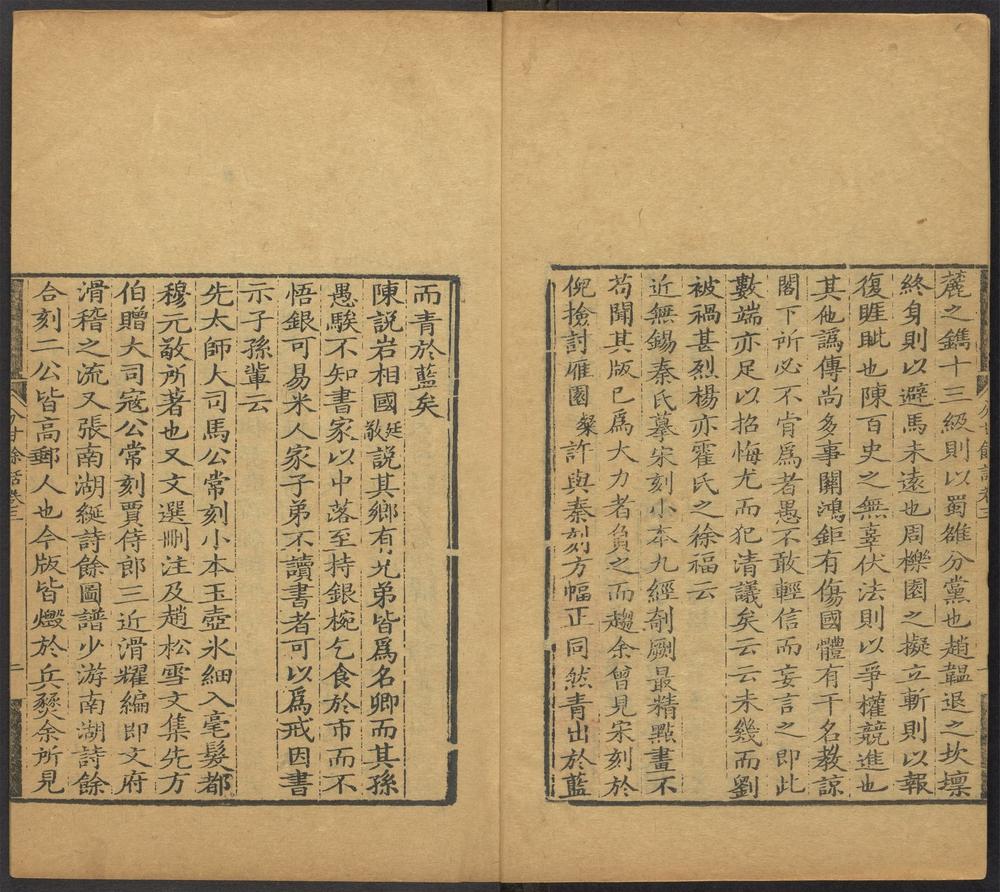 麓之鐫十三級則以蜀雒分黨也趙韞退之坎壈
終身則以避馬未遠也周櫟園之擬立斬則以報
復睚眦也陳百史之無辜伏法則以爭權競進也
其他譌傳尚多事關鴻鉅有傷國體有干名教諒
閣下所必不肯爲者愚不敢輕信而妄言之即此
數端亦足以招悔尤而犯清議矣云云未幾而劉
被禍甚烈楊亦霍氏之徐福云
近無錫秦氏摹宋刻小本九經剞劂最精點畫不
苟聞其版已爲大力者負之而趨余曾見宋刻於
倪撿討雁園粲許與秦刻方幅正同然青出於藍
而青於藍矣
陳說岩相國廷敬說其鄉有兄弟皆爲名卿而其孫
愚騃不知書家以中落至持銀椀乞食於市而不
悟銀可易米人家子弟不讀書者可以爲戒因書
示子孫輩云
先太師大司馬公常刻小本玉壺氷細入毫髮都
穆元敬所著也又文選刪注及趙松雪文集先方
伯贈大司寇公常刻賈侍郎三近滑耀編即文府
滑稽之流又張南湖綖詩餘圖譜少游南湖詩餘
合刻二公皆高郵人也今版皆燬於兵燹余所見
分甘餘話卷三
二